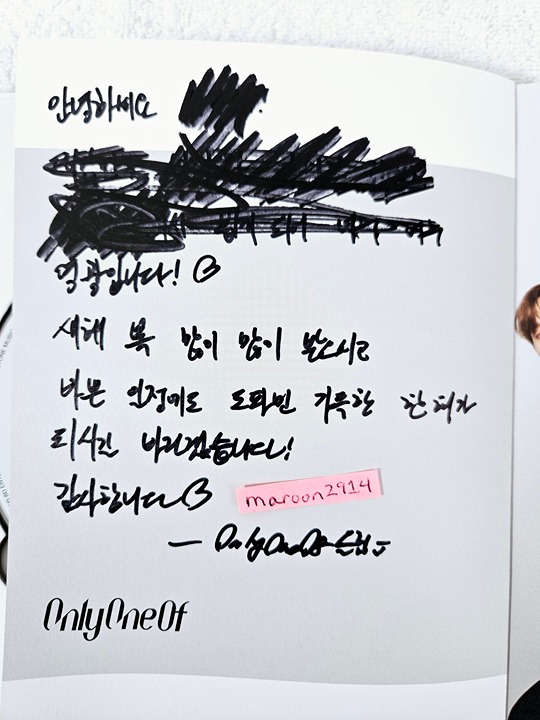 안녕하세요
영광입니다!
새해 복 많이 많이 받으시고
바쁜 일정에도 도파민 가득한 한 해가
되시길 바라겠습니다!
감사합니다
maroon2914
— OnlyOneOf
OnlyOneOf